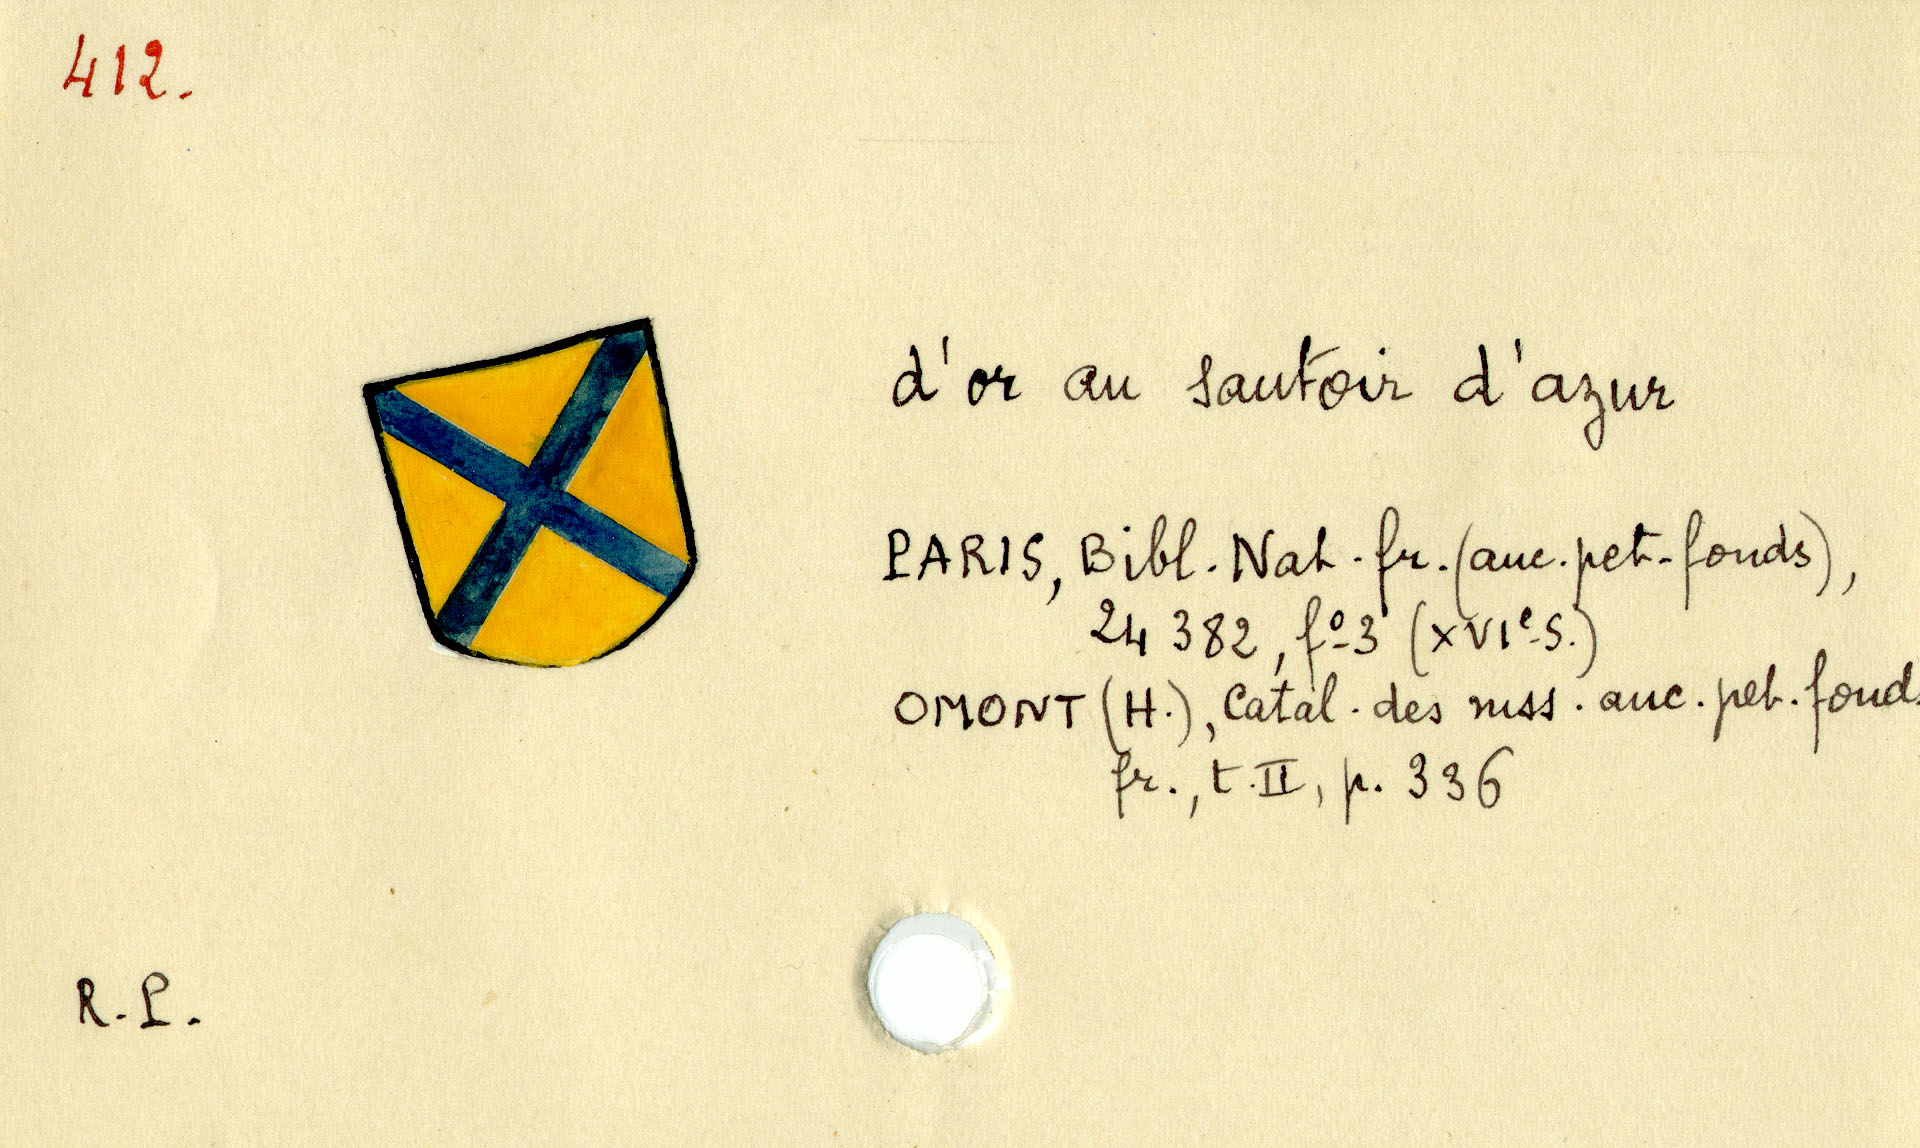 412.
d'or au sautoir d'azur
PARIS, Bibl. Nat. fr. (anc. pet. fonds),
24 382, fº 3 (XVIe S.)
OMONT (H.), Catal. des mss. anc. pet. fonds
fr., t. II, p. 336
R. P.